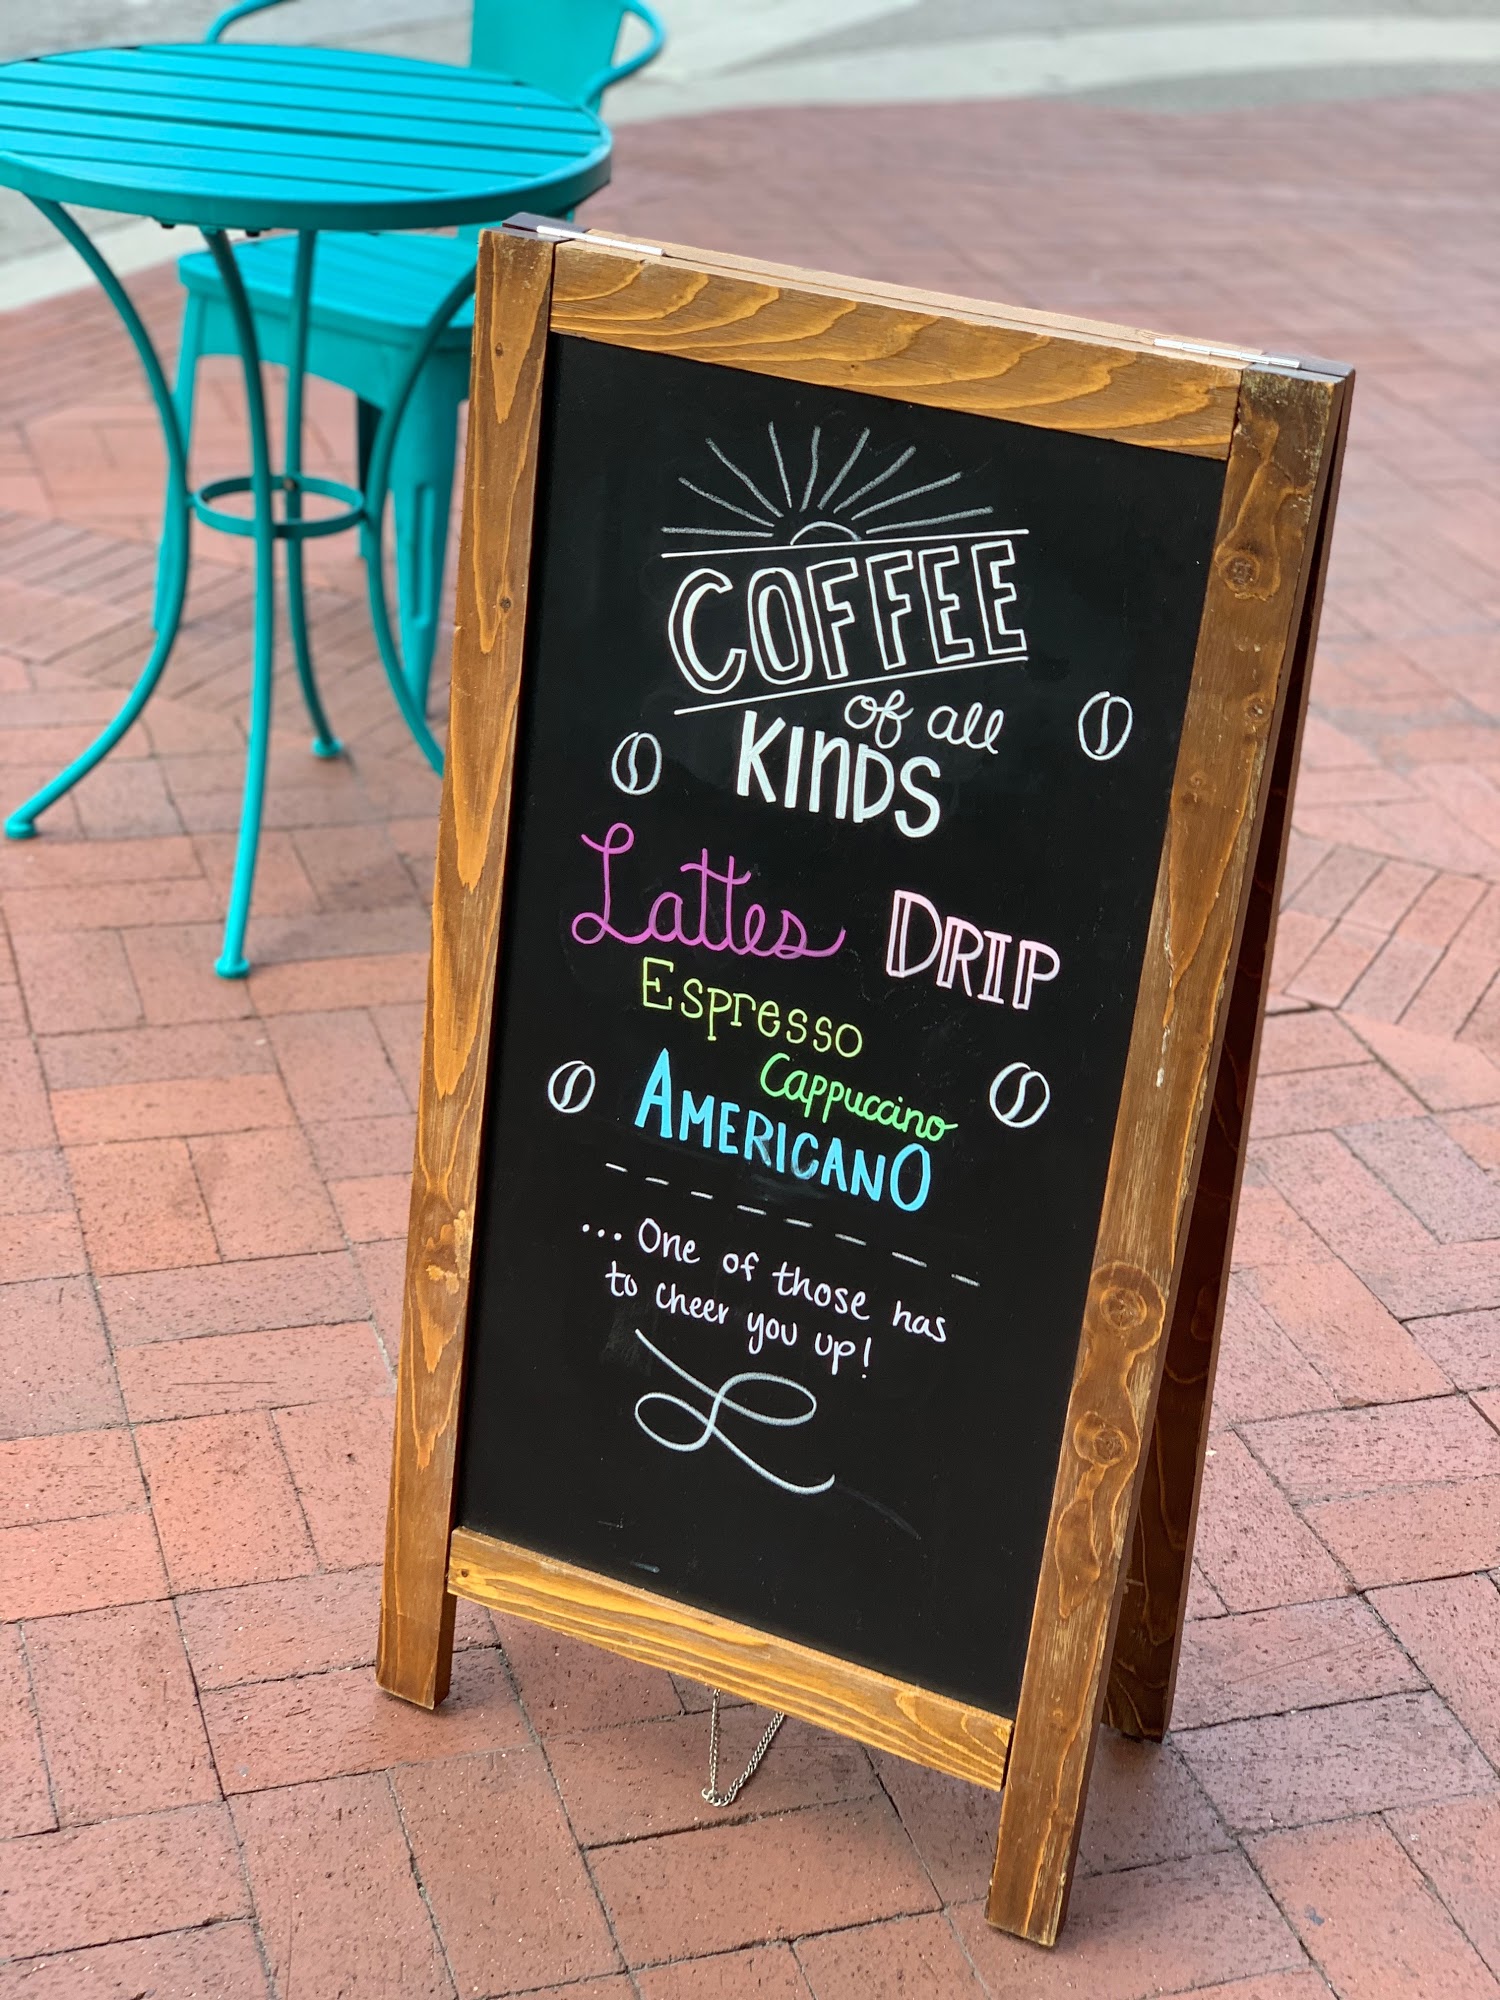 COFFEE
of all
KINDS
Lattes DRIP
Espresso
Cappuccino
AMERICANO
... One of those has
to cheer you up!